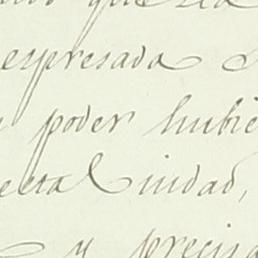 expresada
poder hubie
ecta Ciudad,
y precisa